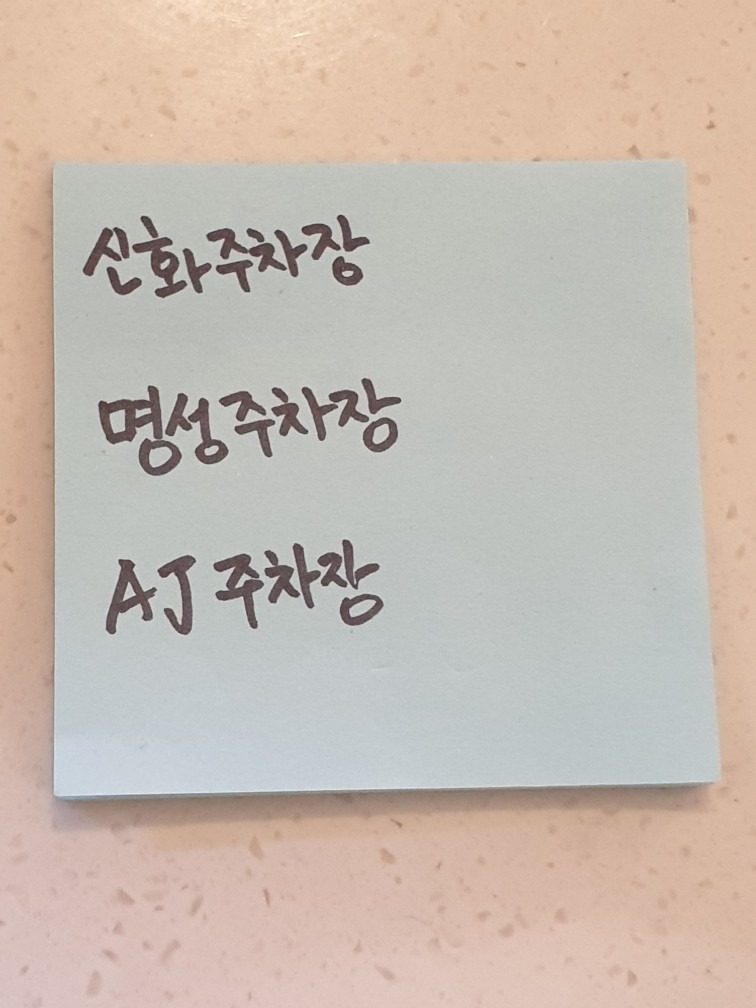 신화주차장
명성주차장
AJ 주차장